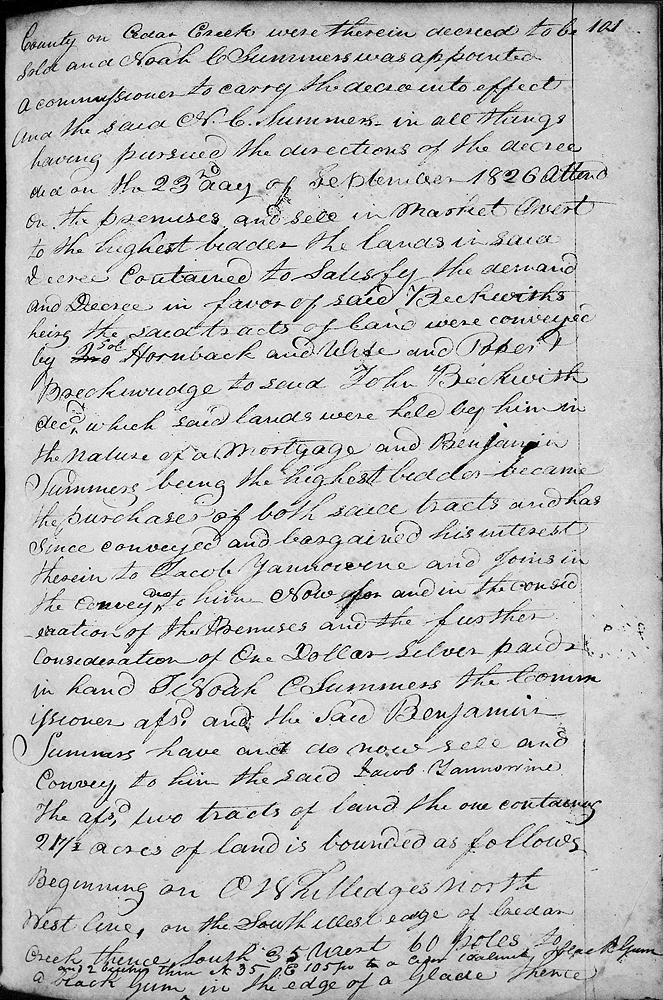 101
County on Cedar Creek were therein decreed to be
Sold and Noah C Summers was appointed
a commissioner to carry the decree into effect
And the said N. C. Summers in all things
having pursued the directions of the decree
did on the 23rd day of September 1826 Attend
on the premises and sell in Market Overt
to the highest bidder the lands in said
Decree Contained to Satisfy the demand
and Decree in favor of said Beckwiths
heirs the said tracts of land were conveyed
by Sol Hornback and Wife and
to said John Beckwith
decd, which said lands were held by him in
the nature of a Mortgage and Benjamin
Summers being the highest bidder became
the purchaser of both said tracts and has
Since conveyed and bargained his interest
therein to Jacob and Joins in
the to him Now for and in the consid
eration of the Premises and the further
Consideration of One Dollar Silver paid
in hand I Noah C Summers the Comm
issioner afsd. and the Said Benjamin
Summers have and do now sell and
Convey to him the said Jacob
The afsd two tracts of land the one containing
acres of land is bounded as follows
Beginning on North
West line, on the South West edge of Cedar
Creek thence South 35 West 60 poles to
and 2 thence N 35 E 105 po to a Black Gum
a Black Gum in the edge of a Glade thence